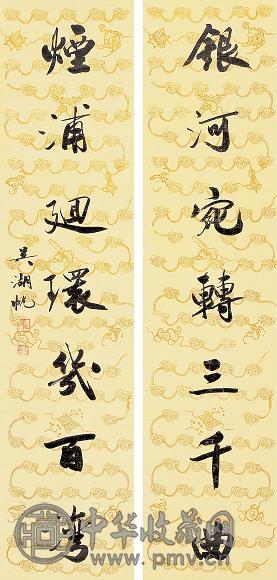 銀河宛轉三千曲
煙浦迴環幾百彎
吳湖帆
中华收藏网
www.pmv.cn